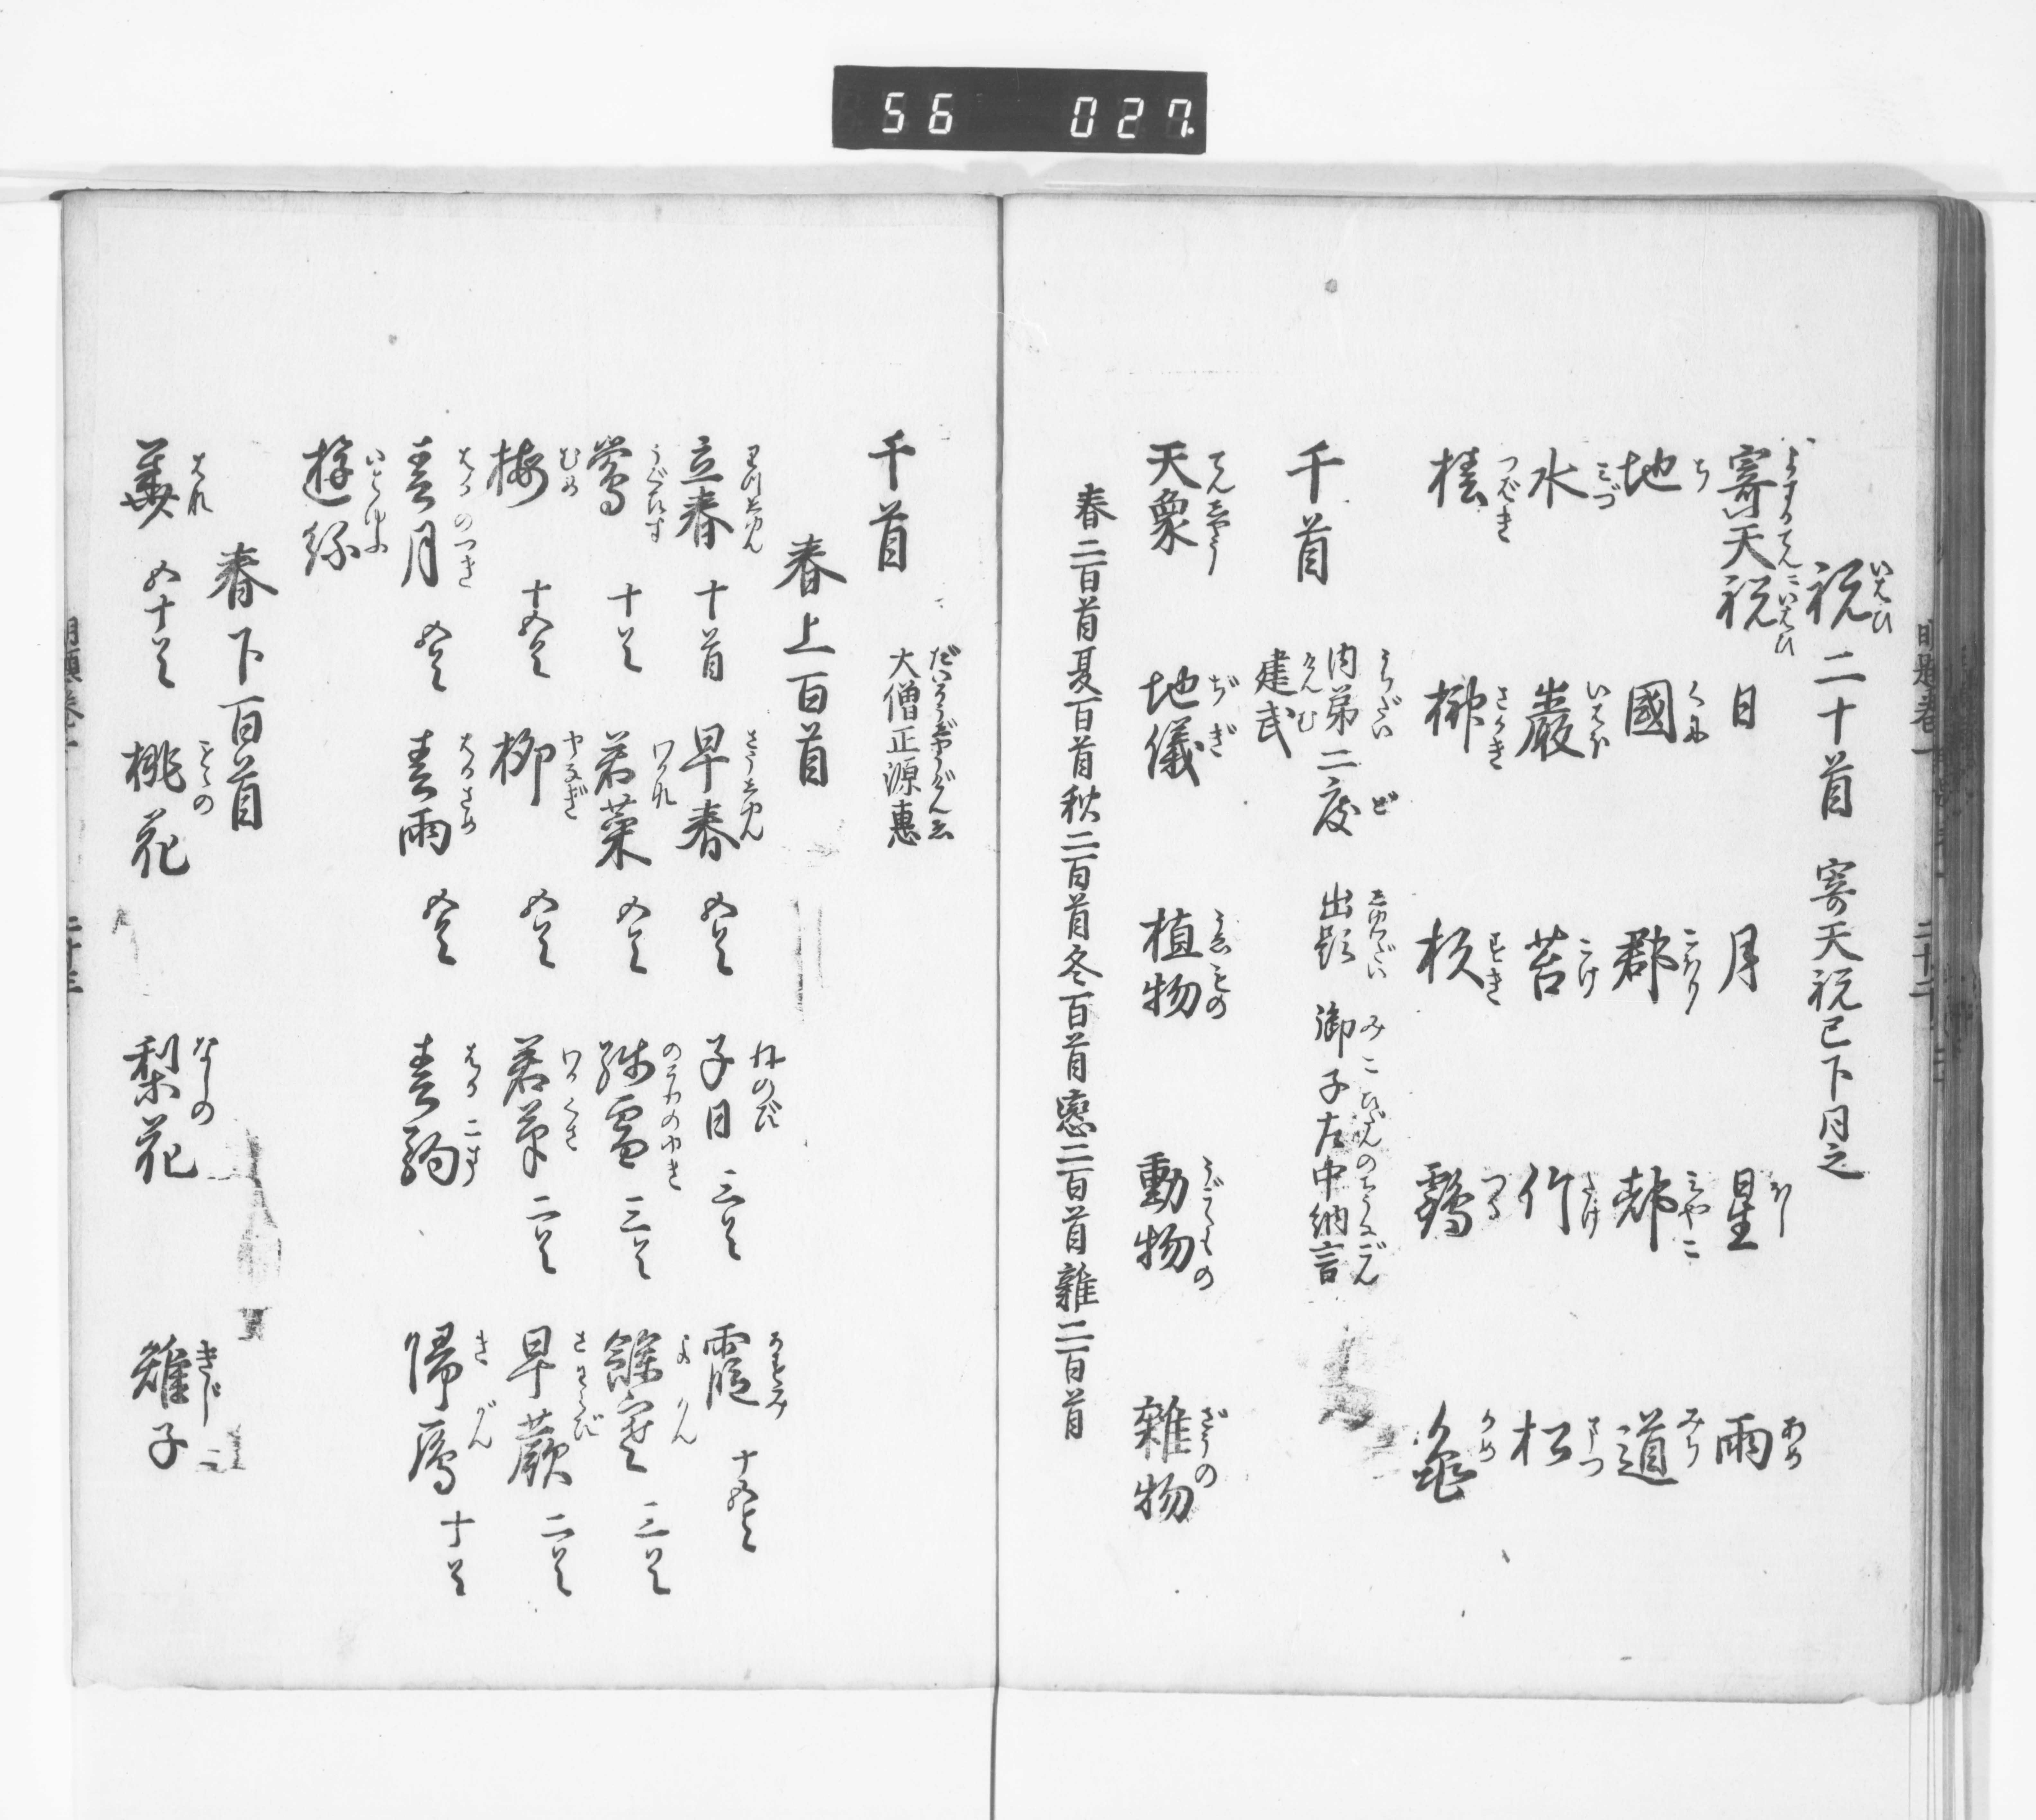 56 027
祝二十首 寄天祝已下同之
寄天祝 日 月 星 雨
地 國 郡 都 道
水 巖 苔 竹 松
椿 榊 杦 鶴 龜
千首 内第二度 出題 御子左中納言
建武
天象 地儀 植物 動物 雑物
春二百首夏百首秋二百首冬百首戀二百首雜二百首
千首 大僧正源惠
春上百首
立春 十首 早春 五首 子日 三首 霞 十五首
鶯 十首 若菜 五首 残雪 三首 餘寒 三首
梅 十五首 柳 五首 若草 二首 早蕨 二首
春月 五首 春雨 五首 春駒 帰鴈 十首
遊絲
春下百首
花 五十首 桃花 梨花 雉子